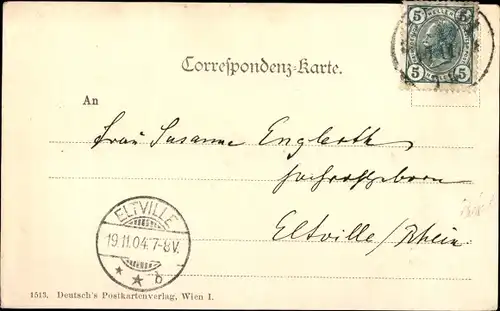 5 HELLER 5
5 5
Correspondenz-Karte.
An
Frau Susanne Engleoth
Hochwohlgeboren
Eltville / Rhein
ELTVILLE
19.11.04.7-8V.
* * b
1513. Deutsch's Postkartenverlag, Wien I.